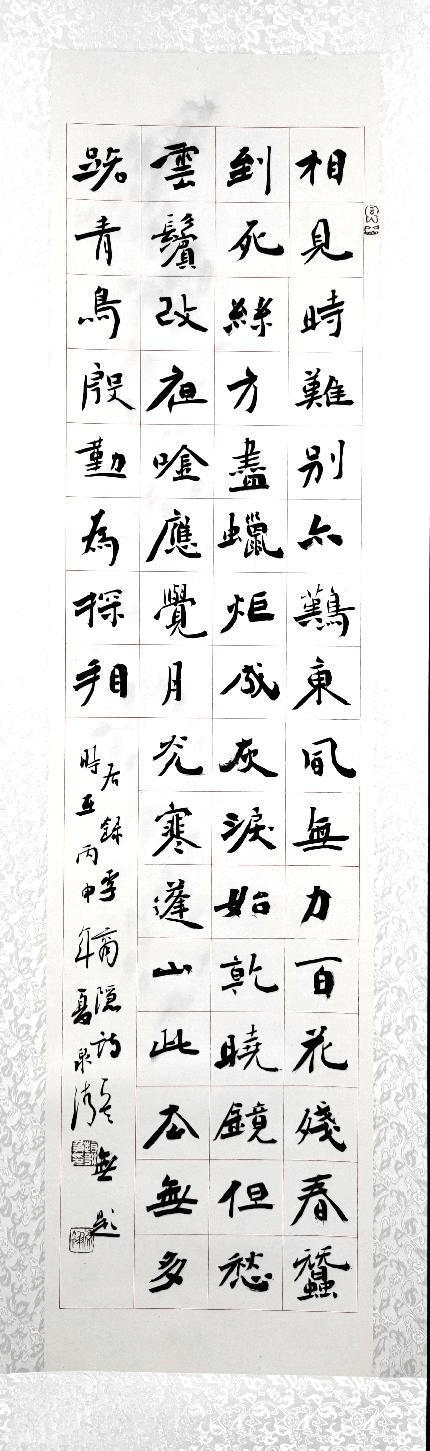 相見時難別亦難東風無力百花殘春蠶
到死絲方盡蠟炬成灰淚始乾曉鏡但愁
雲鬢改夜吟應覺月光寒蓬山此去無多
路青鳥殷勤為探看
右錄李商隱詩無題
時在丙申年夏泉